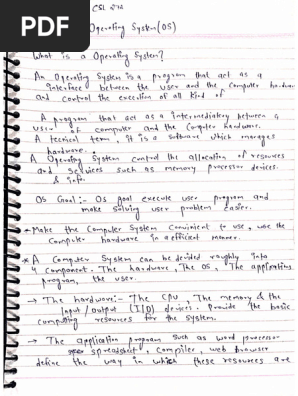 PDF
CSL 572
Operating System (OS)
What is a Operating System?
An Operating System is a program that act as a
interface between the user and the computer hardware
and control the execution of all kind of
A program that act as a intermediatery between a
user of computer and the Computer hardware.
A tecnical term, it is a software which manages
hardware.
A Operating System control the allocation of resources
and services such as memory processor devices.
& info.
OS Goal :- OS goal execute user program and
make solving user problem easier.
* Make the Computer System Convinient to use, use the
Computer hardware in a efficient manner.
* A Computer System can be devided roughly into
4 component. The hardware, The OS, The applications
program, the user.
→ The hardware :- The CPU, The memory & the
Input/output (I/O) devices. Provide the basic
computing resources for the system.
→ The application program such as word processor
spreadsheet, Compiler, web browser
define the way in which these resources are